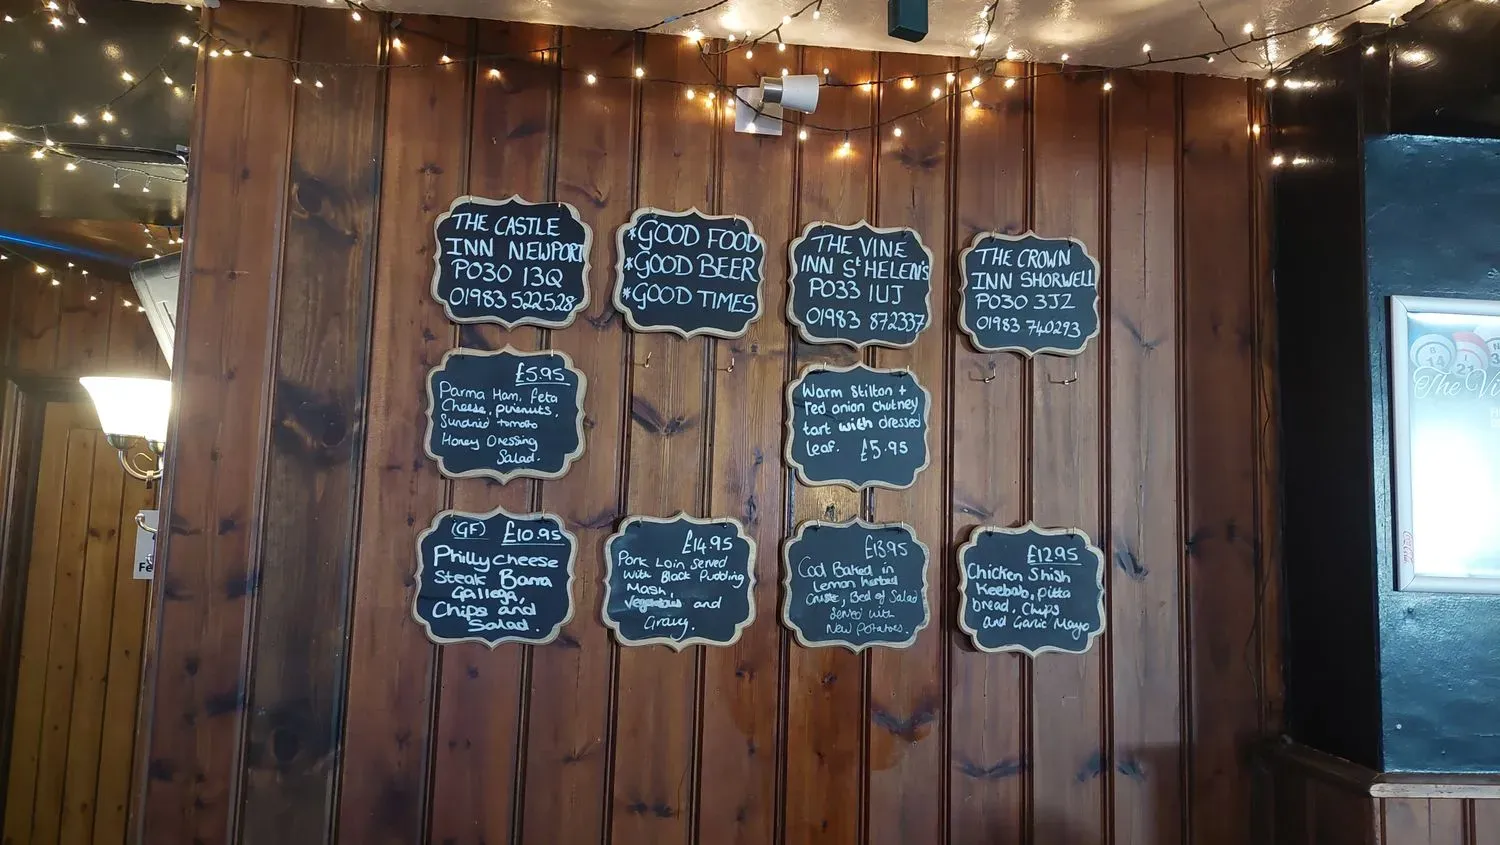 THE CASTLE
INN NEWPORT
PO30 13Q
01983 522528
*GOOD FOOD
*GOOD BEER
*GOOD TIMES
THE VINE
INN St HELEN'S
PO33 1UJ
01983 872337
THE CROWN
INN SHORWELL
PO30 3JZ
01983 740293
£5.95
Parma Ham, feta
Cheese, pinenuts,
Sundried tomato
Honey Dressing
Salad.
Warm Stilton +
red onion chutney
tart with dressed
leaf. £5.95
(GF) £10.95
Philly cheese
Steak Barra
Gallega,
Chips and
Salad.
£14.95
Pork Loin Served
With Black Pudding
Mash,
Vegetables and
Gravy.
£13.95
Cod Baked in
Lemon herbed
Crust, Bed of Salad
Served with
New Potatoes.
£12.95
Chicken Shish
Keebab, pitta
bread, Chips
and Garlic Mayo
B
14
I
21
N
The
Fe